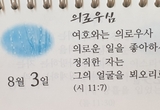 의로우심
여호와는 의로우사
의로운 일을 좋아하
정직한 자는
그의 얼굴을 뵈오리
(시 11:7)
8월 3일